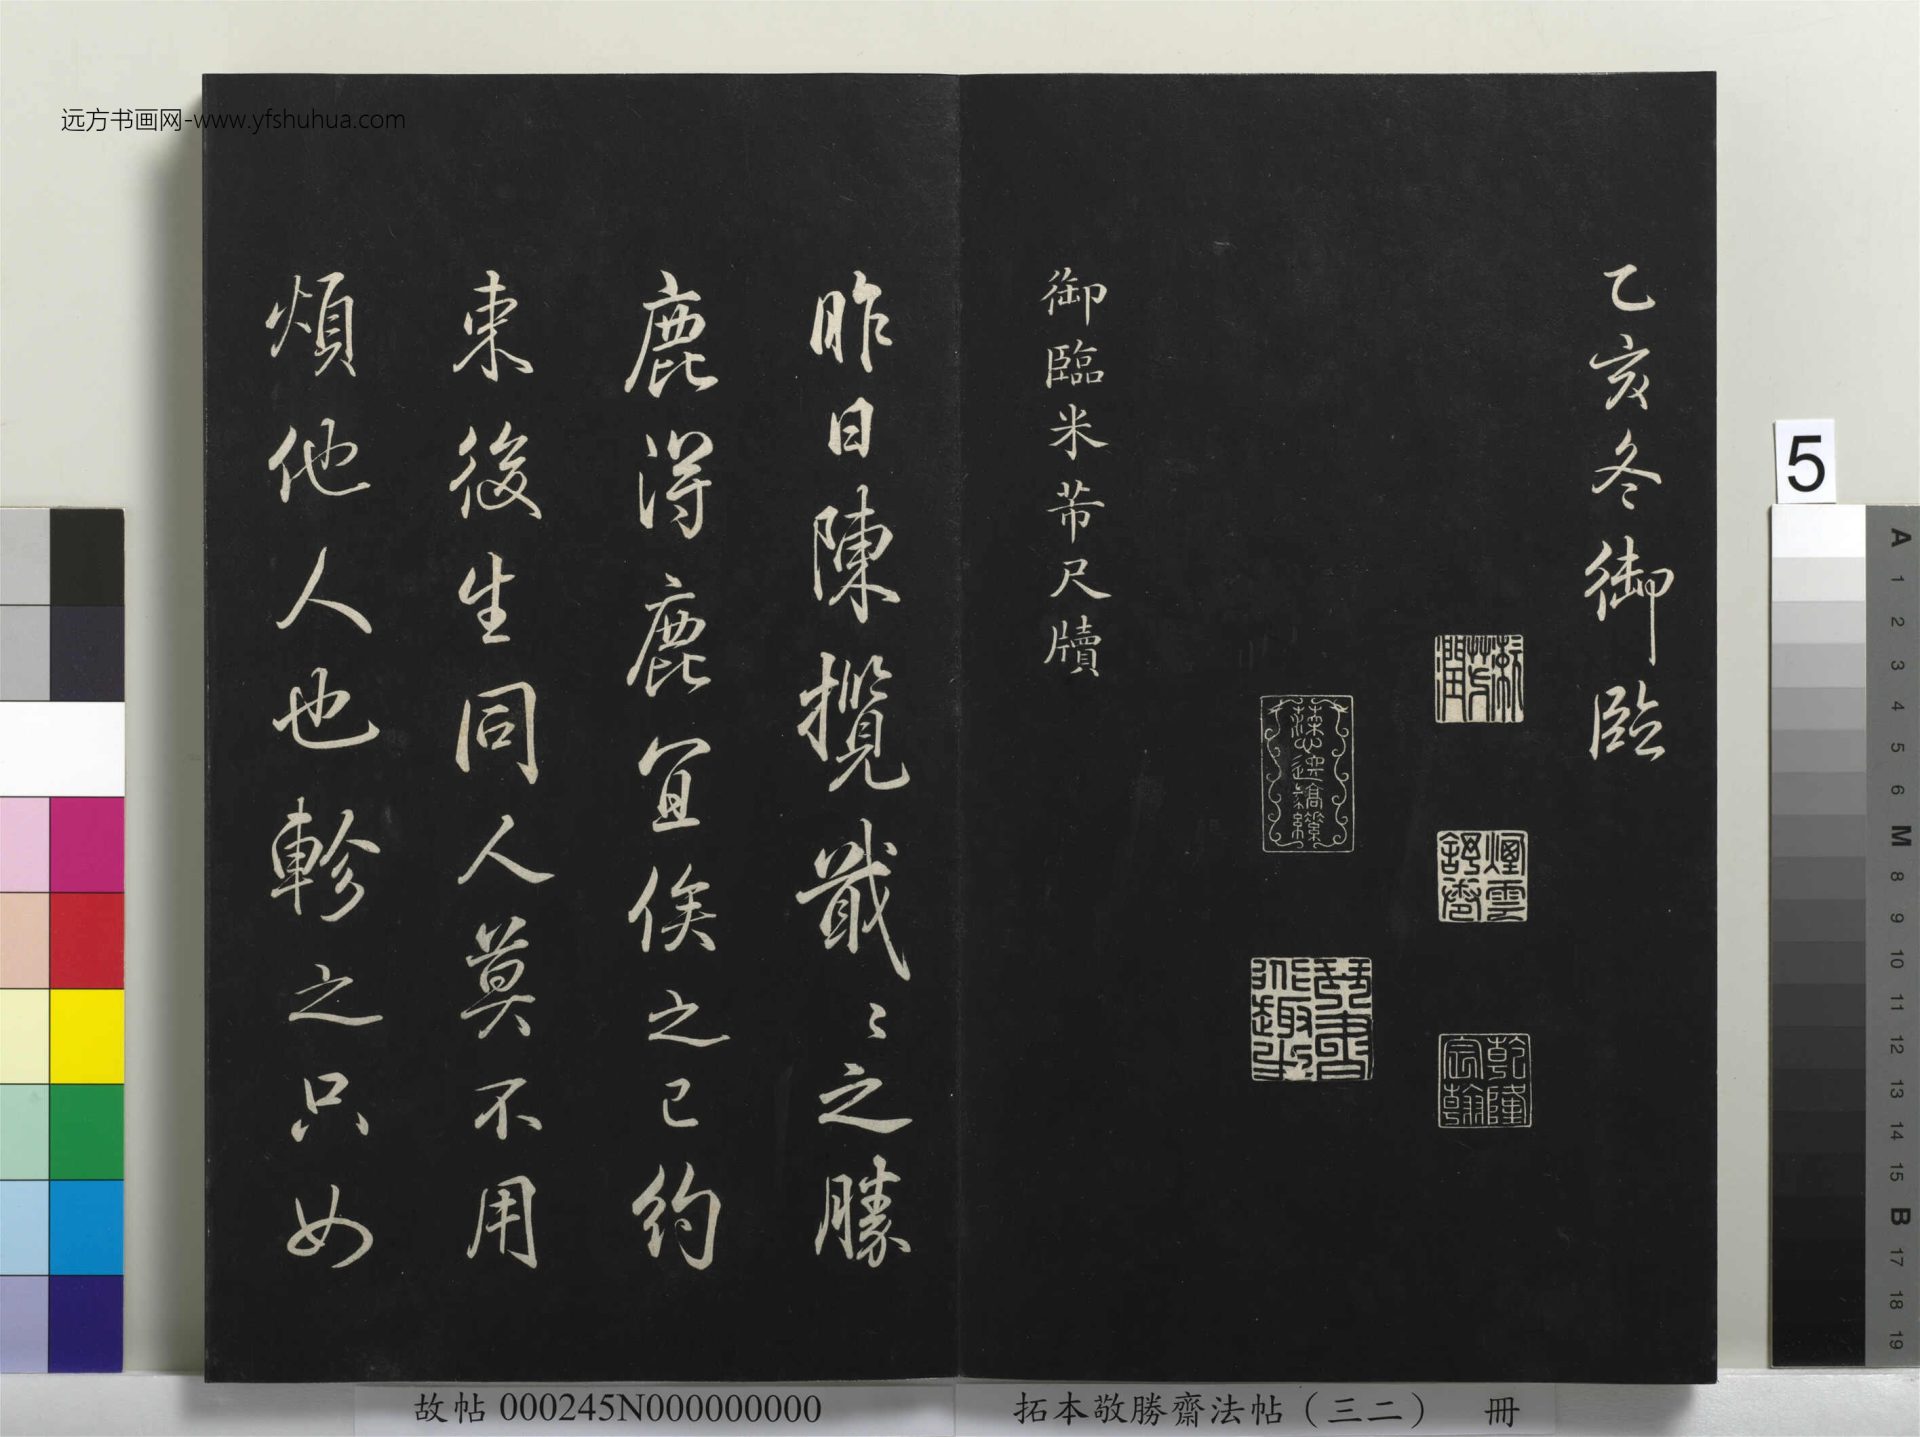 远方书画网-www.yfshuhua.com
乙亥冬御臨
煙雲舒卷
乾隆宸翰
御臨米芾尺牘
昨日陳攬戢戢之勝
鹿得鹿宜俟之已約
束後生同人莫不用
煩他人也軫之只如
5
A 1 2 3 4 5 6 M 8 9 10 11 12 13 14 15 B 17 18 19
故帖 000245N000000000
拓本敬勝齋法帖（三二） 冊